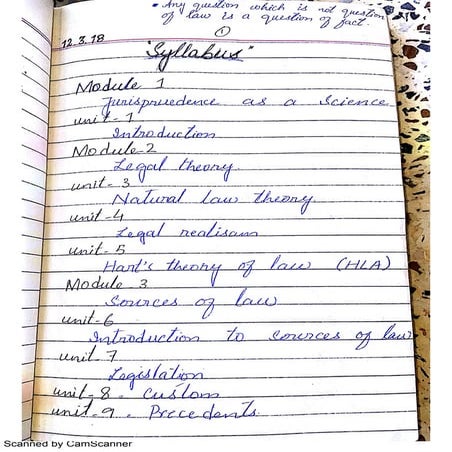 • Any question which is not question
of law is a question of fact.
①
12.3.18
"Syllabus"
Module 1
Jurispruedence as a Science
unit-1
Introduction
Module-2
Legal theory
unit-3
Natural law theory
unit-4
Legal realisam
unit-5
Hart's theory of law (HLA)
Module-3
Sources of law
unit-6
Introduction to sources of law
unit-7
Legislation
unit-8 - Custom
unit-9 - Precedents
Scanned by CamScanner